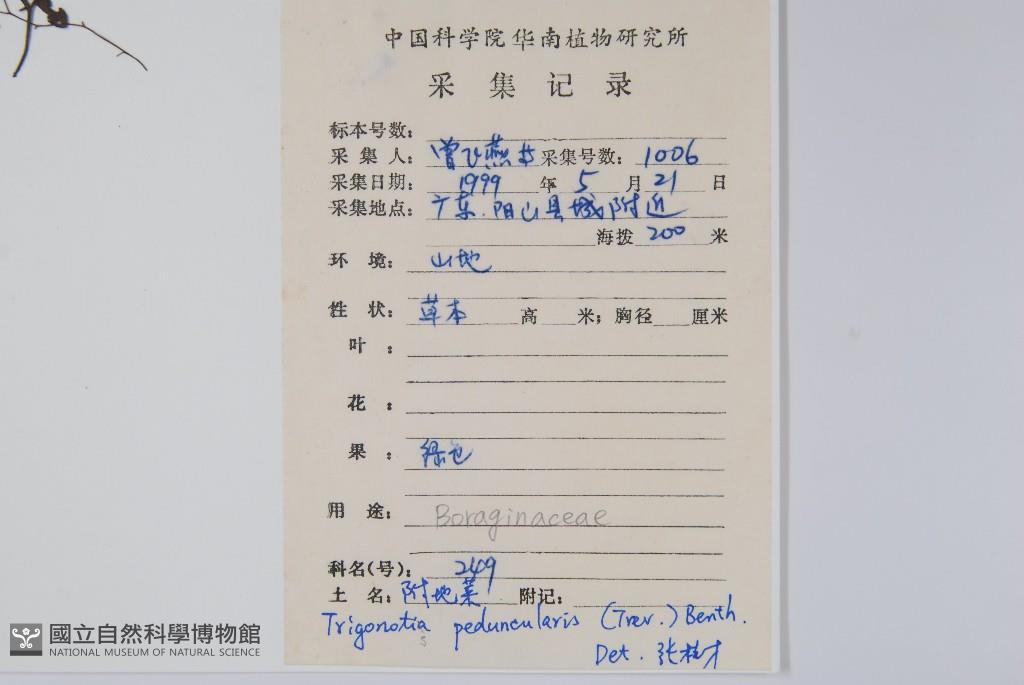 中国科学院华南植物研究所
采集记录
标本号数:
采集人: 曾飞燕 采集号数: 1006
采集日期: 1999 年 5 月 21 日
采集地点: 广东.阳山县城附近
海拨 200 米
环境: 山地
性状: 草本 高 米; 胸径 厘米
叶:
花:
果: 绿色
用途: Boraginaceae
科名(号): 249
土名: 附地菜 附记:
Trigonotia peduncularis (Trev.) Benth.
s
Det. 张桂才
國立自然科學博物館
NATIONAL MUSEUM OF NATURAL SCIENCE